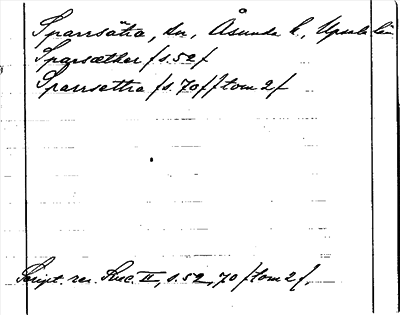 Sparrsätra, sn, Åsunda h., Upsala län
Sparsæther /s.52/
Sparrsettra /s.70//tom 2/
Script. rer. Suec. II, s.52, 70 /tom 2/.